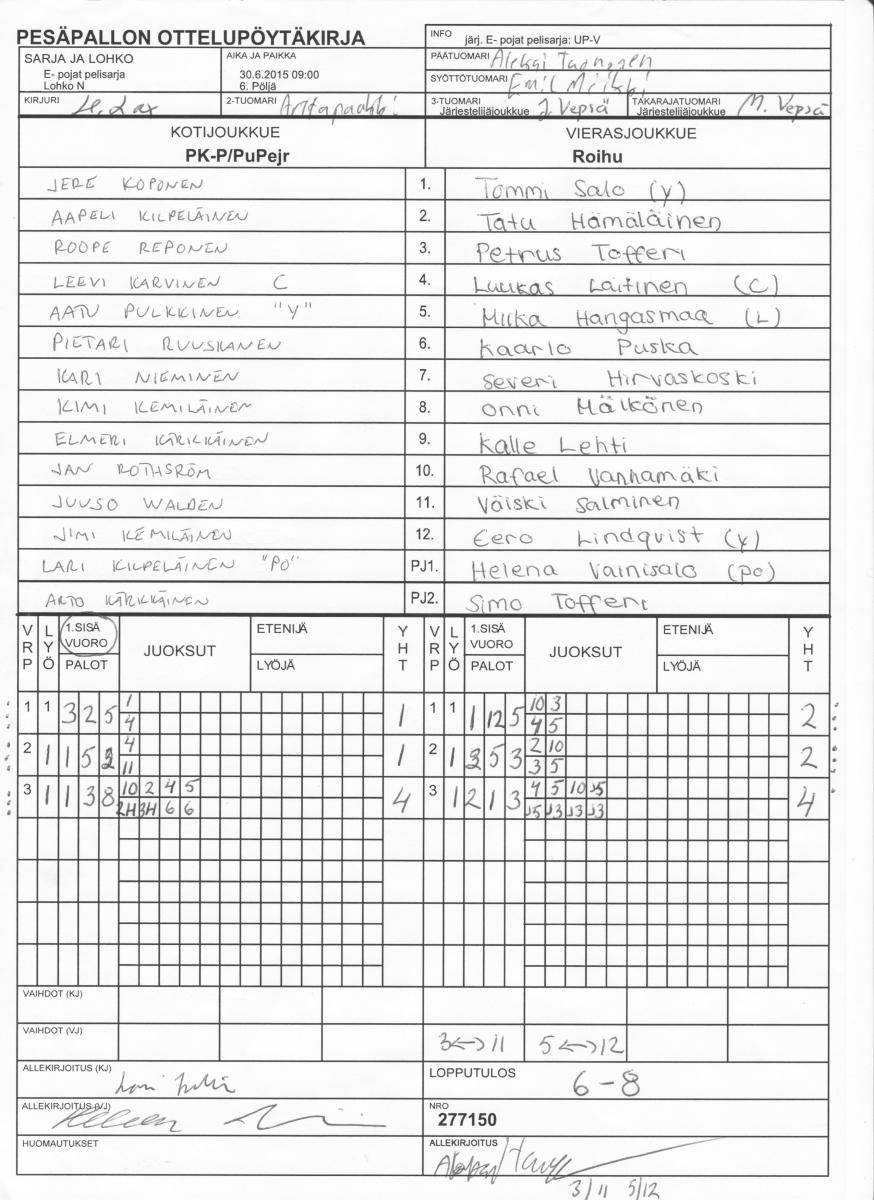 PESÄPALLON OTTELUPÖYTÄKIRJA
INFO järj. E- pojat pelisarja: UP-V
SARJA JA LOHKO
E- pojat pelisarja
Lohko N
AIKA JA PAIKKA
30.6.2015 09:00
6. Pöljä
PÄÄTUOMARI Aleksi
SYÖTTÖTUOMARI Emil
KIRJURI
2-TUOMARI
3-TUOMARI Järjestelijäjoukkue J. Vepsä
TAKARAJATUOMARI Järjestelijäjoukkue M. Vepsä
KOTIJOUKKUE VIERASJOUKKUE
PK-P/PuPejr Roihu
JERE KOPONEN 1. Tommi Salo (y)
AAPELI KILPELÄINEN 2. Tatu Hämäläinen
ROOPE REPONEN 3. Petrus Tofferi
LEEVI KARVINEN C 4. Luukas Laitinen (C)
AATU PULKKINEN "Y" 5. Miika Hangasmaa (L)
PIETARI RUUSKANEN 6. Kaarlo Puska
KARI NIEMINEN 7. Severi Hirvaskoski
KIMI KEMILÄINEN 8. Onni Mälkönen
ELMERI KÄRKKÄINEN 9. Kalle Lehti
JAN ROTHSRÖM 10. Rafael Vanhamäki
JUUSO WALDEN 11. Väiski Salminen
JIMI KEMILÄINEN 12. Eero Lindqvist (y)
LARI KILPELÄINEN "PO" PJ1. Helena Vainisalo (po)
ARTO KÄRKKÄINEN PJ2. Simo Tofferi
VRP LYÖ 1.SISÄ VUORO PALOT JUOKSUT ETENIJÄ LYÖJÄ YHT VRP LYÖ 1.SISÄ VUORO PALOT JUOKSUT ETENIJÄ LYÖJÄ YHT
1 1 3 2 5 1 1 1 1 1 12 5 10 3 2
4 4 5
2 1 1 5 4 1 2 1 5 3 2 10 2
11 3 5
3 1 1 3 8 10 2 4 5 4 3 1 2 1 3 4 5 10 4
2H 3H 6 6
VAIHDOT (KJ)
VAIHDOT (VJ) 3<->11 5<->12
ALLEKIRJOITUS (KJ) LOPPUTULOS 6-8
ALLEKIRJOITUS (VJ)
NRO
277150
HUOMAUTUKSET ALLEKIRJOITUS
3/11 5/12